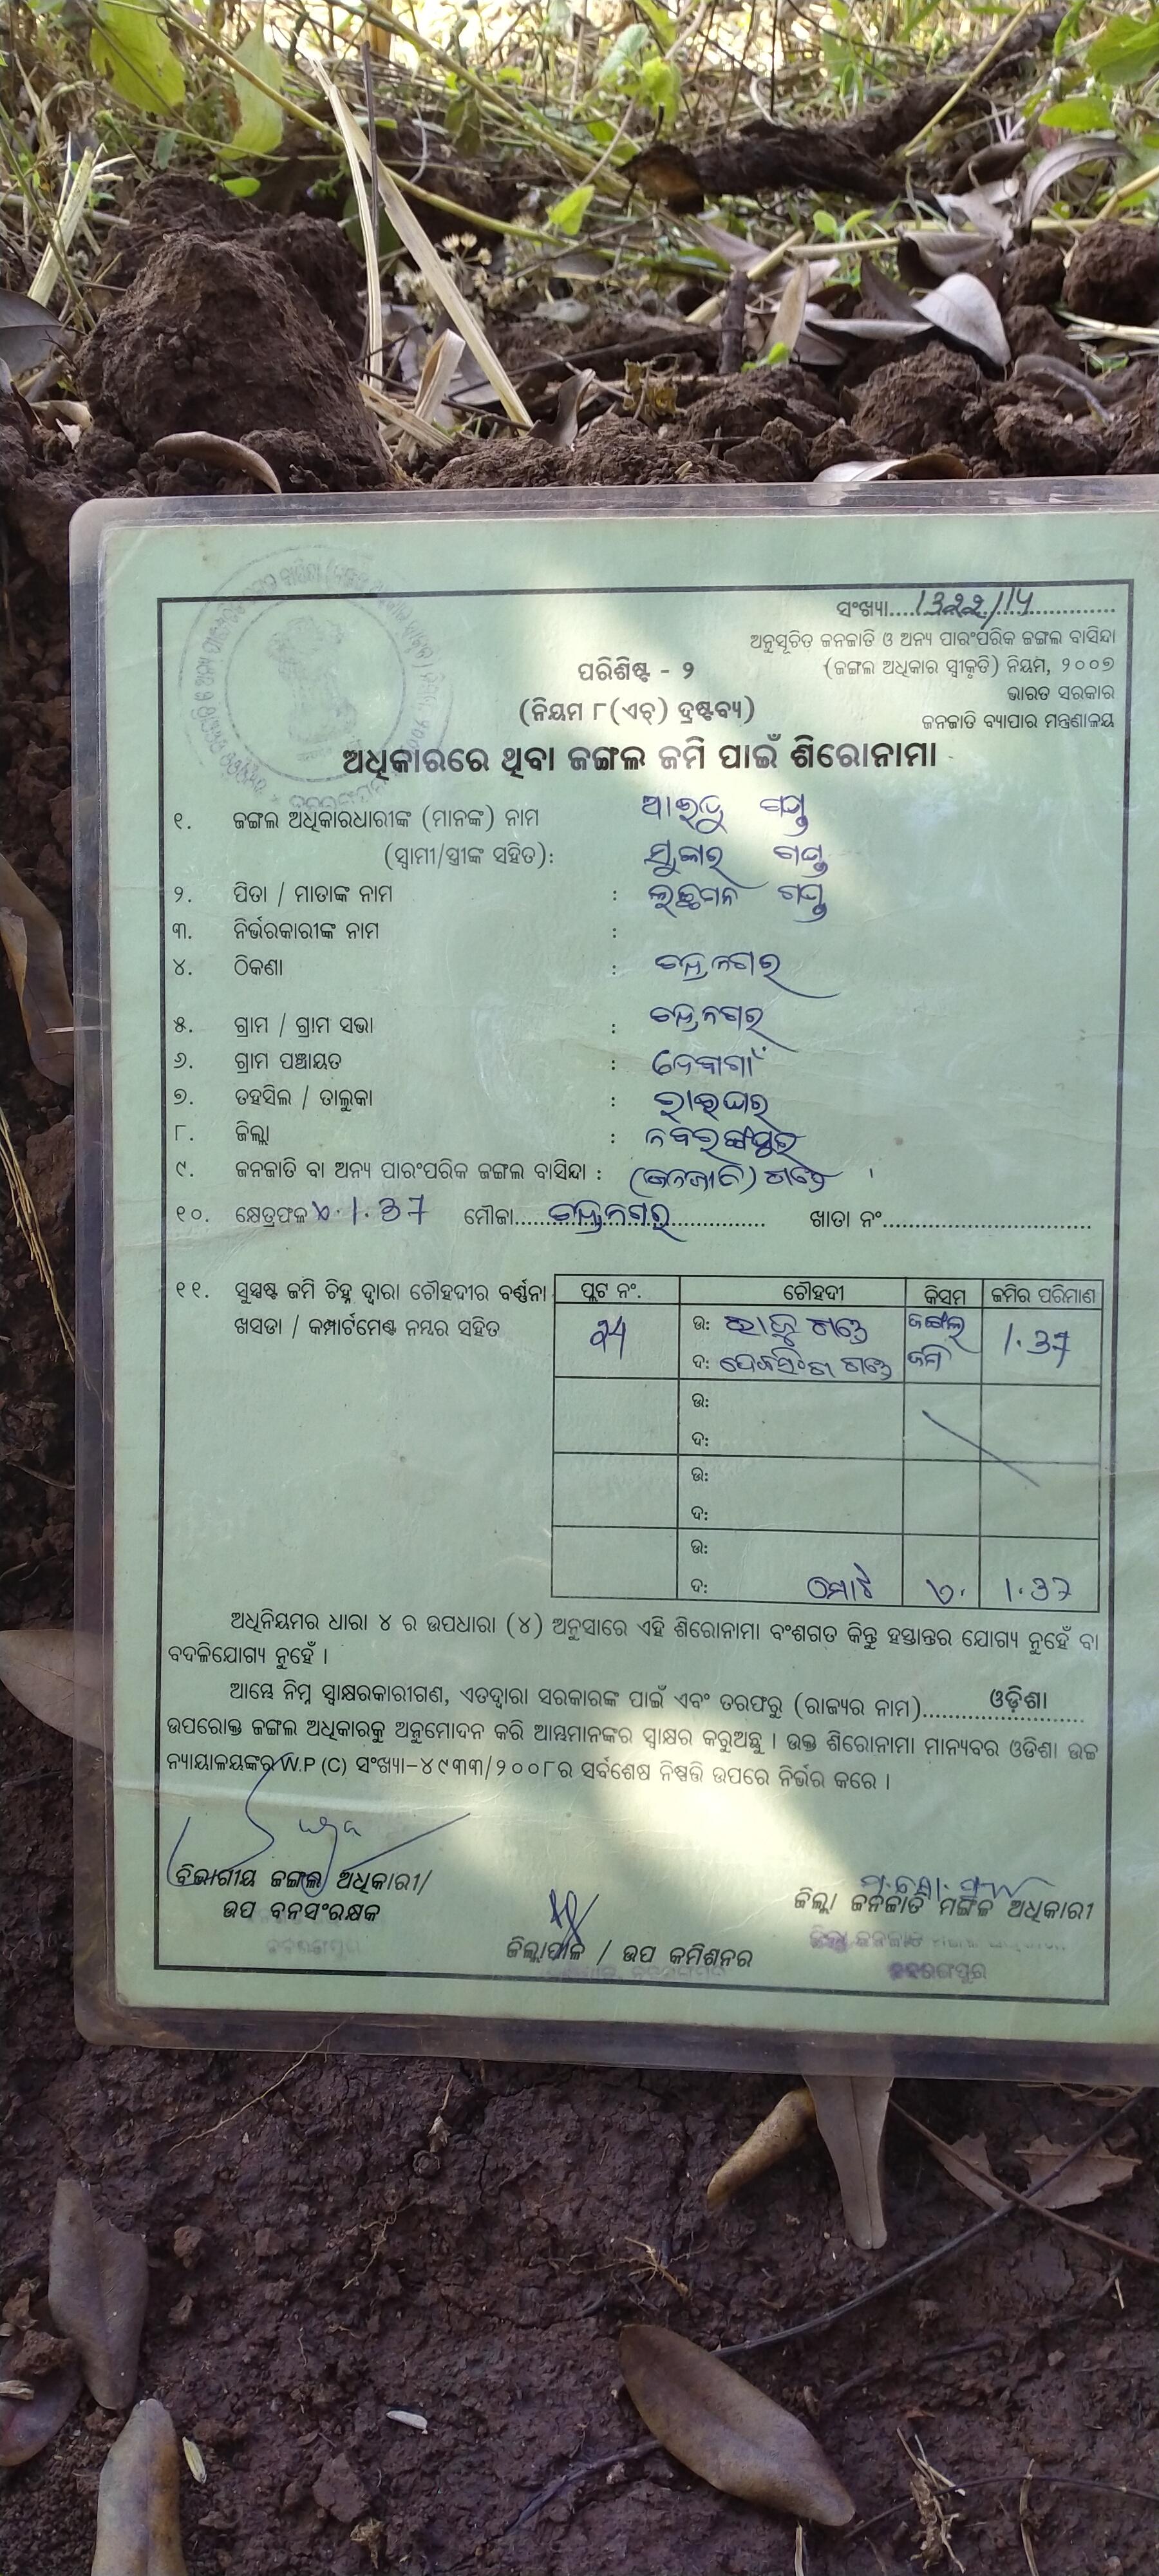 ସଂଖ୍ୟା....1322/14
ଅନୁସୂଚିତ ଜନଜାତି ଓ ଅନ୍ୟ ପାରଂପରିକ ଜଙ୍ଗଲ ବାସିନ୍ଦା
(ଜଙ୍ଗଲ ଅଧିକାର ସ୍ୱୀକୃତି) ନିୟମ, ୨୦୦୭
ଭାରତ ସରକାର
ଜନଜାତି ବ୍ୟାପାର ମନ୍ତ୍ରଣାଳୟ
ପରିଶିଷ୍ଟ - ୨
(ନିୟମ ୮(ଏଚ୍) ଦ୍ରଷ୍ଟବ୍ୟ)
ଅଧିକାରରେ ଥିବା ଜଙ୍ଗଲ ଜମି ପାଇଁ ଶିରୋନାମା
୧. ଜଙ୍ଗଲ ଅଧିକାରଧାରୀଙ୍କ (ମାନଙ୍କ) ନାମ
(ସ୍ୱାମୀ/ସ୍ତ୍ରୀଙ୍କ ସହିତ):
୨. ପିତା / ମାତାଙ୍କ ନାମ : ଲୁଛମନ ଗଣ୍ଡ
୩. ନିର୍ଭରକାରୀଙ୍କ ନାମ :
୪. ଠିକଣା : ଚନ୍ଦ୍ରନଗର
୫. ଗ୍ରାମ / ଗ୍ରାମ ସଭା : ଚନ୍ଦ୍ରନଗର
୬. ଗ୍ରାମ ପଞ୍ଚାୟତ :
୭. ତହସିଲ / ତାଲୁକା : ରାଇଘର
୮. ଜିଲ୍ଲା : ନବରଙ୍ଗପୁର
୯. ଜନଜାତି ବା ଅନ୍ୟ ପାରଂପରିକ ଜଙ୍ଗଲ ବାସିନ୍ଦା : (ଜନଜାତି) ଗଣ୍ଡ
୧୦. କ୍ଷେତ୍ରଫଳ ଏ. 1.37 ମୌଜା....ଚନ୍ଦ୍ରନଗର.... ଖାତା ନଂ....
୧୧. ସୁସ୍ପଷ୍ଟ ଜମି ଚିହ୍ନ ଦ୍ୱାରା ଚୌହଦୀର ବର୍ଣ୍ଣନା
ଖସଡା / କମ୍ପାର୍ଟମେଣ୍ଟ ନମ୍ବର ସହିତ
ପ୍ଲଟ ନଂ. ଚୌହଦୀ କିସମ ଜମିର ପରିମାଣ
ଉ: ରାଜୁ ଗଣ୍ଡ ଜଙ୍ଗଲ 1.37
ଦ: ଗଣ୍ଡ ଜମି
ଉ:
ଦ:
ଉ:
ଦ:
ଉ:
ଦ: ମୋଟ ଏ. 1.37
ଅଧିନିୟମର ଧାରା ୪ ର ଉପଧାରା (୪) ଅନୁସାରେ ଏହି ଶିରୋନାମା ବଂଶଗତ କିନ୍ତୁ ହସ୍ତାନ୍ତର ଯୋଗ୍ୟ ନୁହେଁ ବା
ବଦଳିଯୋଗ୍ୟ ନୁହେଁ ।
ଆମ୍ଭେ ନିମ୍ନ ସ୍ୱାକ୍ଷରକାରୀଗଣ, ଏତଦ୍ୱାରା ସରକାରଙ୍କ ପାଇଁ ଏବଂ ତରଫରୁ (ରାଜ୍ୟର ନାମ)....ଓଡ଼ିଶା....
ଉପରୋକ୍ତ ଜଙ୍ଗଲ ଅଧିକାରକୁ ଅନୁମୋଦନ କରି ଆମ୍ଭମାନଙ୍କର ସ୍ୱାକ୍ଷର କରୁଅଛୁ । ଉକ୍ତ ଶିରୋନାମା ମାନ୍ୟବର ଓଡିଶା ଉଚ୍ଚ
ନ୍ୟାୟାଳୟଙ୍କର W.P (C) ସଂଖ୍ୟା-୪୯୩୩/୨୦୦୮ର ସର୍ବଶେଷ ନିଷ୍ପତ୍ତି ଉପରେ ନିର୍ଭର କରେ ।
ବିଭାଗୀୟ ଜଙ୍ଗଲ ଅଧିକାରୀ/
ଉପ ବନସଂରକ୍ଷକ
ନବରଙ୍ଗପୁର
ଜିଲ୍ଲାପାଳ / ଉପ କମିଶନର
ଜିଲ୍ଲା ଜନଜାତି ମଙ୍ଗଳ ଅଧିକାରୀ
ନବରଙ୍ଗପୁର